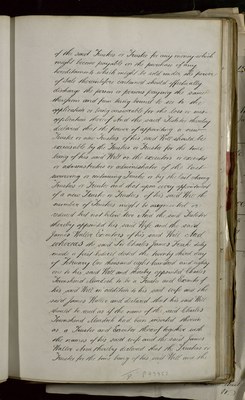 of the said Trustees or Trustee for any money which
might become payable on the purchase of any
hereditaments which might be sold under the power
of Sale thereinbefore contained should effectually
discharge the person or persons paying the same
therefrom and from being bound to see to the
application or being answerable for the loss or mis-
application thereof And the said Testator thereby
declared that the power of appointing a new
Trustee or new Trustees of his said Will should be
exercisable by the Trustees or Trustee for the time
being of his said Will or the executors or executor
or administrators or administrator of the last
surviving or continuing Trustee or by the last acting
Trustees or Trustee and that upon every appointment
of a new Trustee or Trustees of his said Will the
number of Trustees might be augmented or
reduced but not below two And the said Testator
thereby appointed his said Wife and the said
James Waller Executors of his said Will And
whereas the said Sir Charles James by
made a first Codicil dated the twenty third day
of February One thousand eight hundred and
one to his said Will and thereby appointed Charles
Townshend Murdoch to be a Trustee and Executor of
his said Will in addition to his said wife and the
said James Waller and declared that his said Will
should be read as if the name of the said Charles
Townshend Murdoch had been inserted therein
as a Trustee and Executor thereof together with
the names of his said wife and the said James
Waller And thereby declared that the Trustees or
Trustee for the time being of his said Will and the